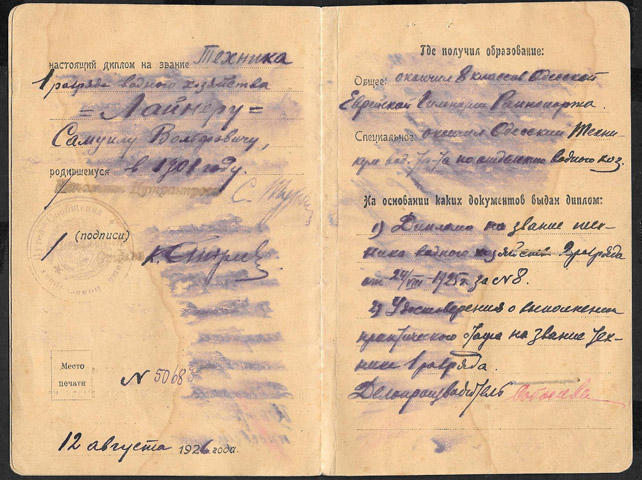 настоящий диплом на звание Техника
1 разряда водного хозяйства
= Лайнеру =
Самуилу Вольфовичу,
родившемуся в 1901 году.
(подписи)
№ 5068
Место
печати
12 августа 1926 года.
Где получил образование:
Общее: окончил 8 классов Одесской
Еврейской Гимназии Раппопорта.
Специальное: окончил Одесский Техни
кум вод. х-ва по отделению водного хоз.
На основании каких документов выдан диплом:
1) Диплома на звание тех-
ника водного хозяйств 2 разряда
от 24/VIII 1925 г. за № 8.
2) Удостоверения о выполнении
практического стажа на звание Тех-
ника 1 разряда.
Делопроизводитель